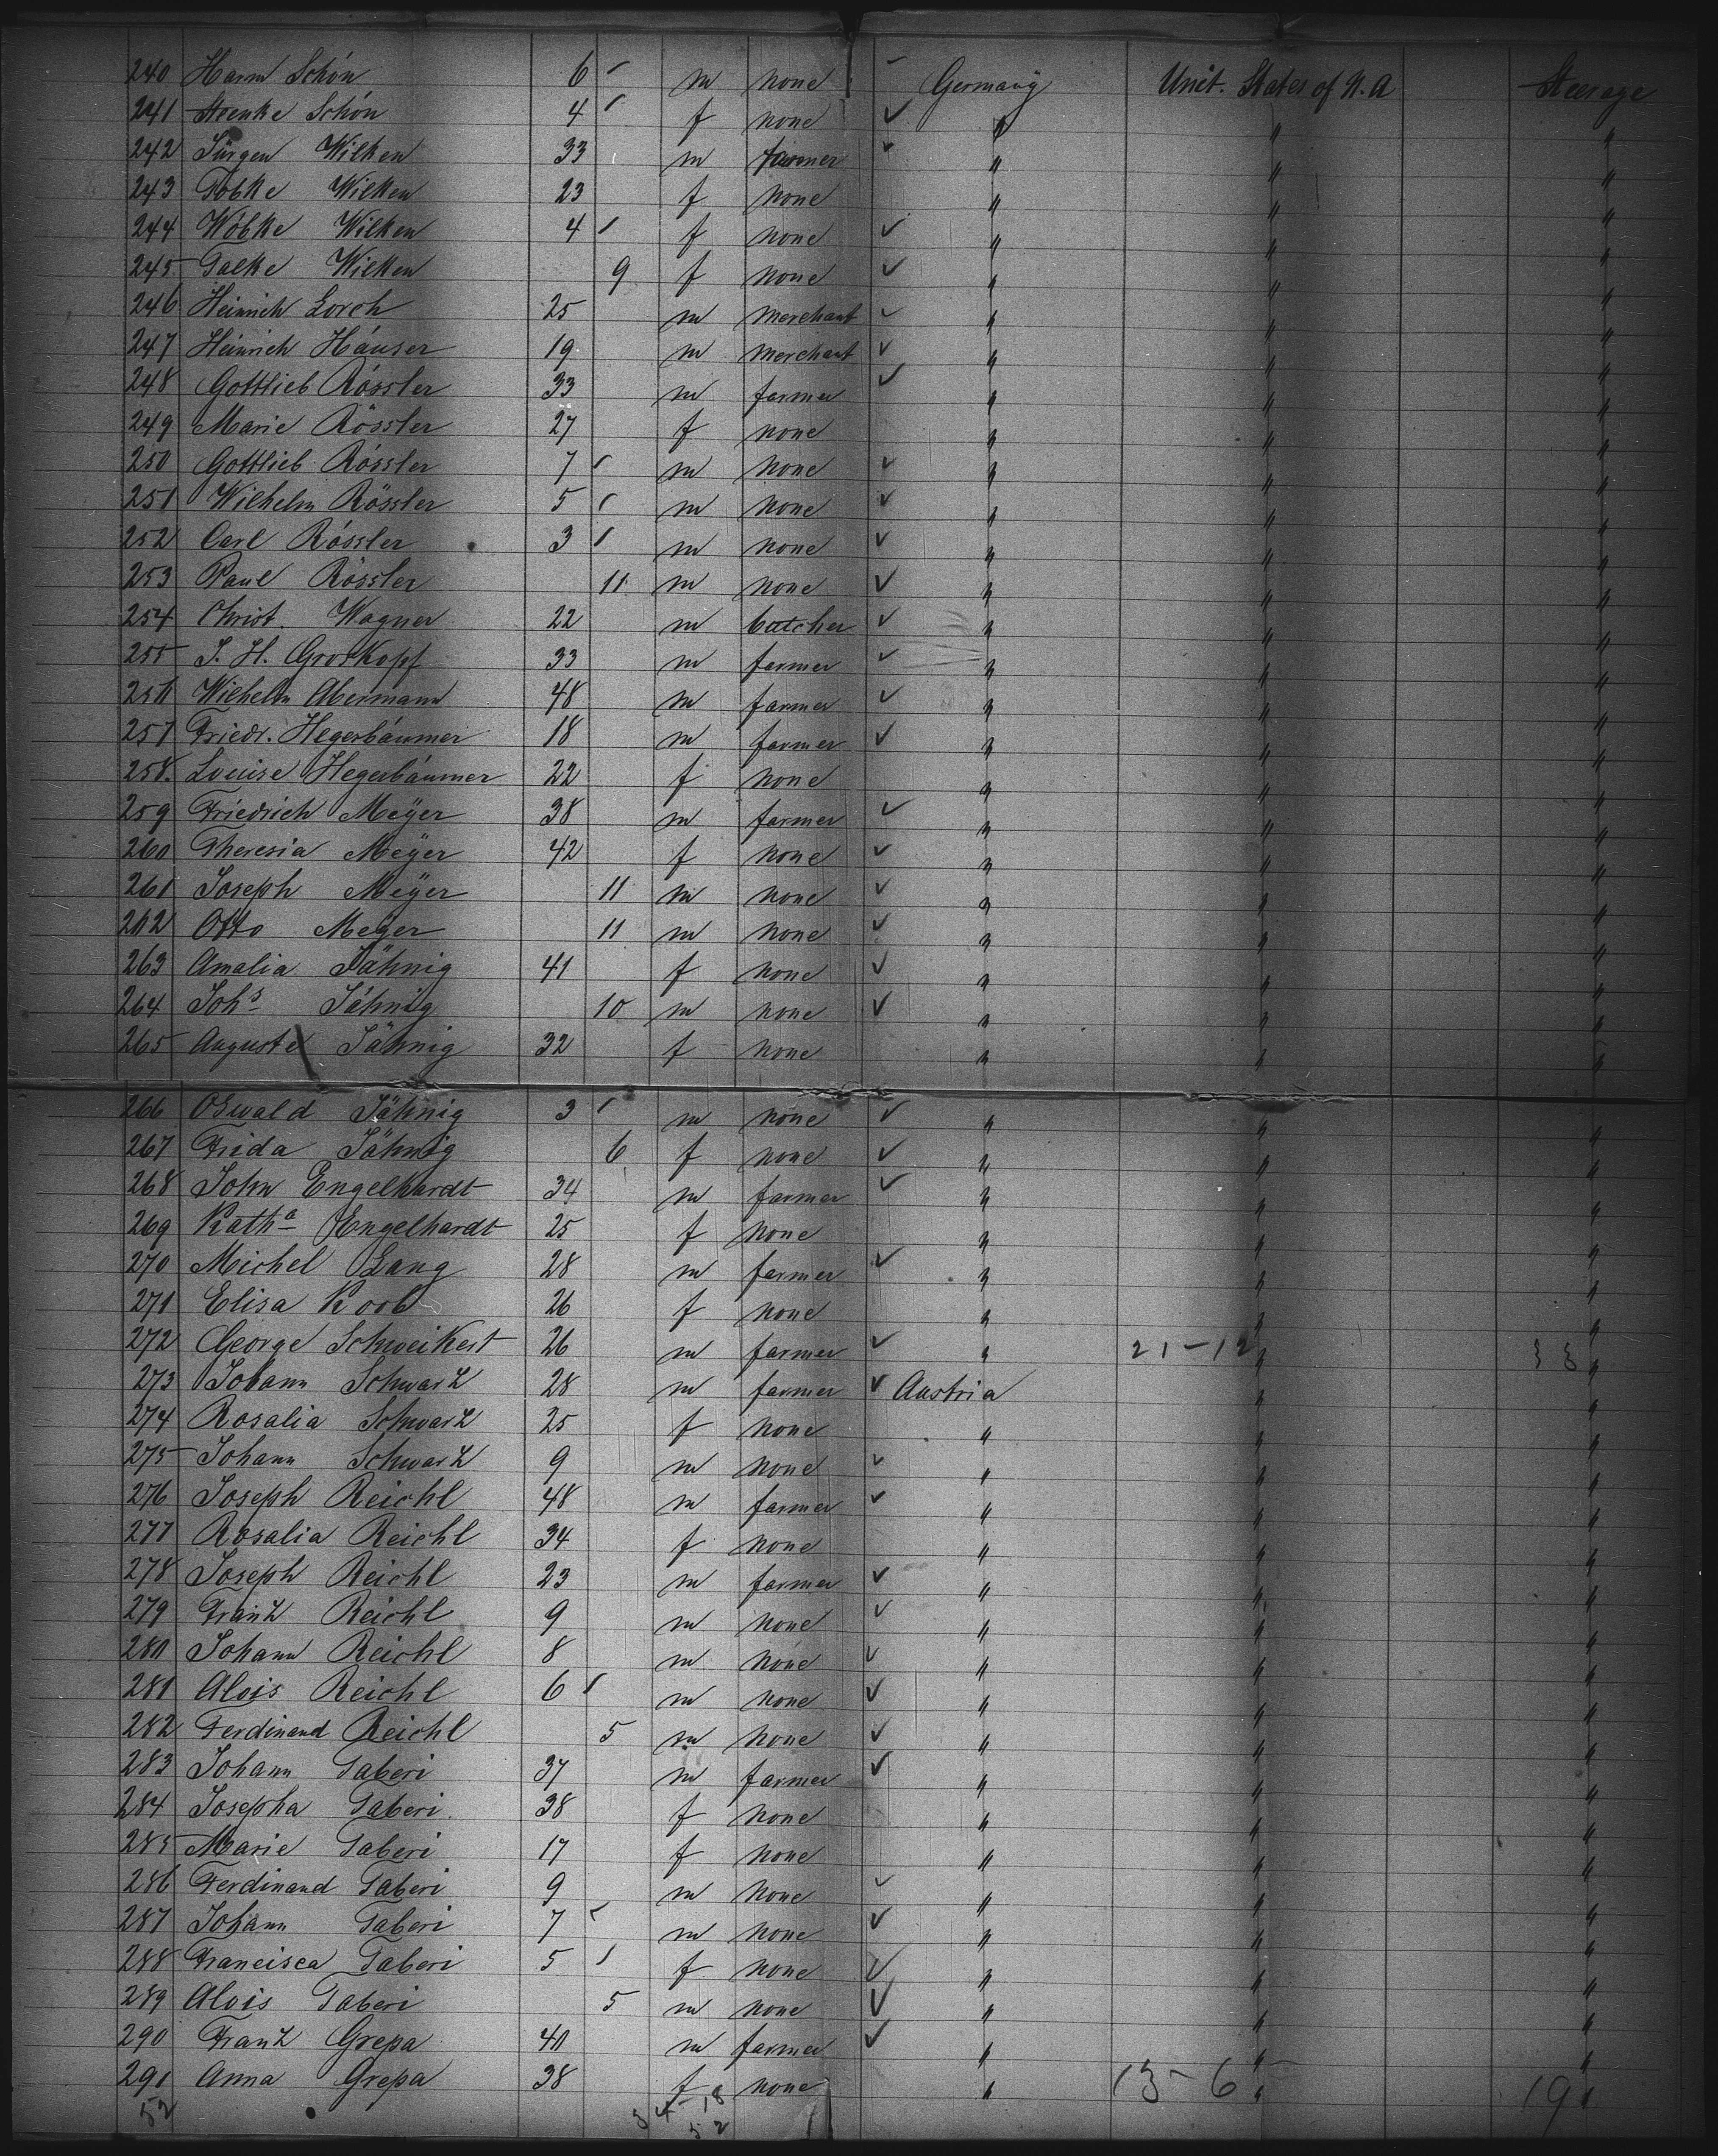 240 Harm Schön 6 m none Germany Unit. States of N. A Steerage
241 Heenke Schön 4 f none " " "
242 Jürgen Wilken 33 m farmer " " "
243 Tobke Wilken 23 f none " " "
244 Wöbke Wilken 4 f none " " "
245 Talke Wilken 9 f none " " "
246 Heinrich Lorch 25 m merchant " " "
247 Heinrich Häuser 19 m merchant " " "
248 Gottlieb Rössler 33 m farmer " " "
249 Marie Rössler 27 f none " " "
250 Gottlieb Rössler 7 m none " " "
251 Wilhelm Rössler 5 m none " " "
252 Carl Rössler 3 m none " " "
253 Paul Rössler 11 m none " " "
254 Christ. Wagner 22 m butcher " " "
255 J. H. Groskopf 33 m farmer " " "
256 Wilhelm Abermann 48 m farmer " " "
257 Friedr. Hegerbäumer 18 m farmer " " "
258. Louise Hegerbäumer 22 f none " " "
259 Friedrich Meÿer 38 m farmer " " "
260 Theresia Meÿer 42 f none " " "
261 Joseph Meÿer 11 m none " " "
262 Otto Meyer 11 m none " " "
263 Amalia Jähnig 41 f none " " "
264 Johs Jähnig 10 m none " " "
265 Auguste Jähnig 32 f none " " "
266 Oswald Jähnig 3 m none " " "
267 Frida Jähnig 6 f none " " "
268 John Engelhardt 34 m farmer " " "
269 Katha Engelhardt 25 f none " " "
270 Michel Lang 28 m farmer " " "
271 Elisa Koob 26 f none " " "
272 George Schweikert 26 m farmer " 21-12 " 33 "
273 Johann Schwarz 28 m farmer Austria " "
274 Rosalia Schwarz 25 f none " " "
275 Johann Schwarz 9 m none " " "
276 Joseph Reichl 48 m farmer " " "
277 Rosalia Reichl 34 f none " " "
278 Joseph Reichl 23 m farmer " " "
279 Franz Reichl 9 m none " " "
280 Johann Reichl 8 m none " " "
281 Alois Reichl 6 m none " " "
282 Ferdinand Reichl 5 m none " " "
283 Johann Taberi 37 m farmer " " "
284 Josepha Taberi 38 f none " " "
285 Marie Taberi 17 f none " " "
286 Ferdinand Taberi 9 m none " " "
287 Johann Taberi 7 m none " " "
288 Francisca Taberi 5 f none " " "
289 Alois Taberi 5 m none " " "
290 Franz Grepa 40 m farmer " " "
291 Anna Grepa 38 f none " 13-6 " 19 "
52 34-18
52